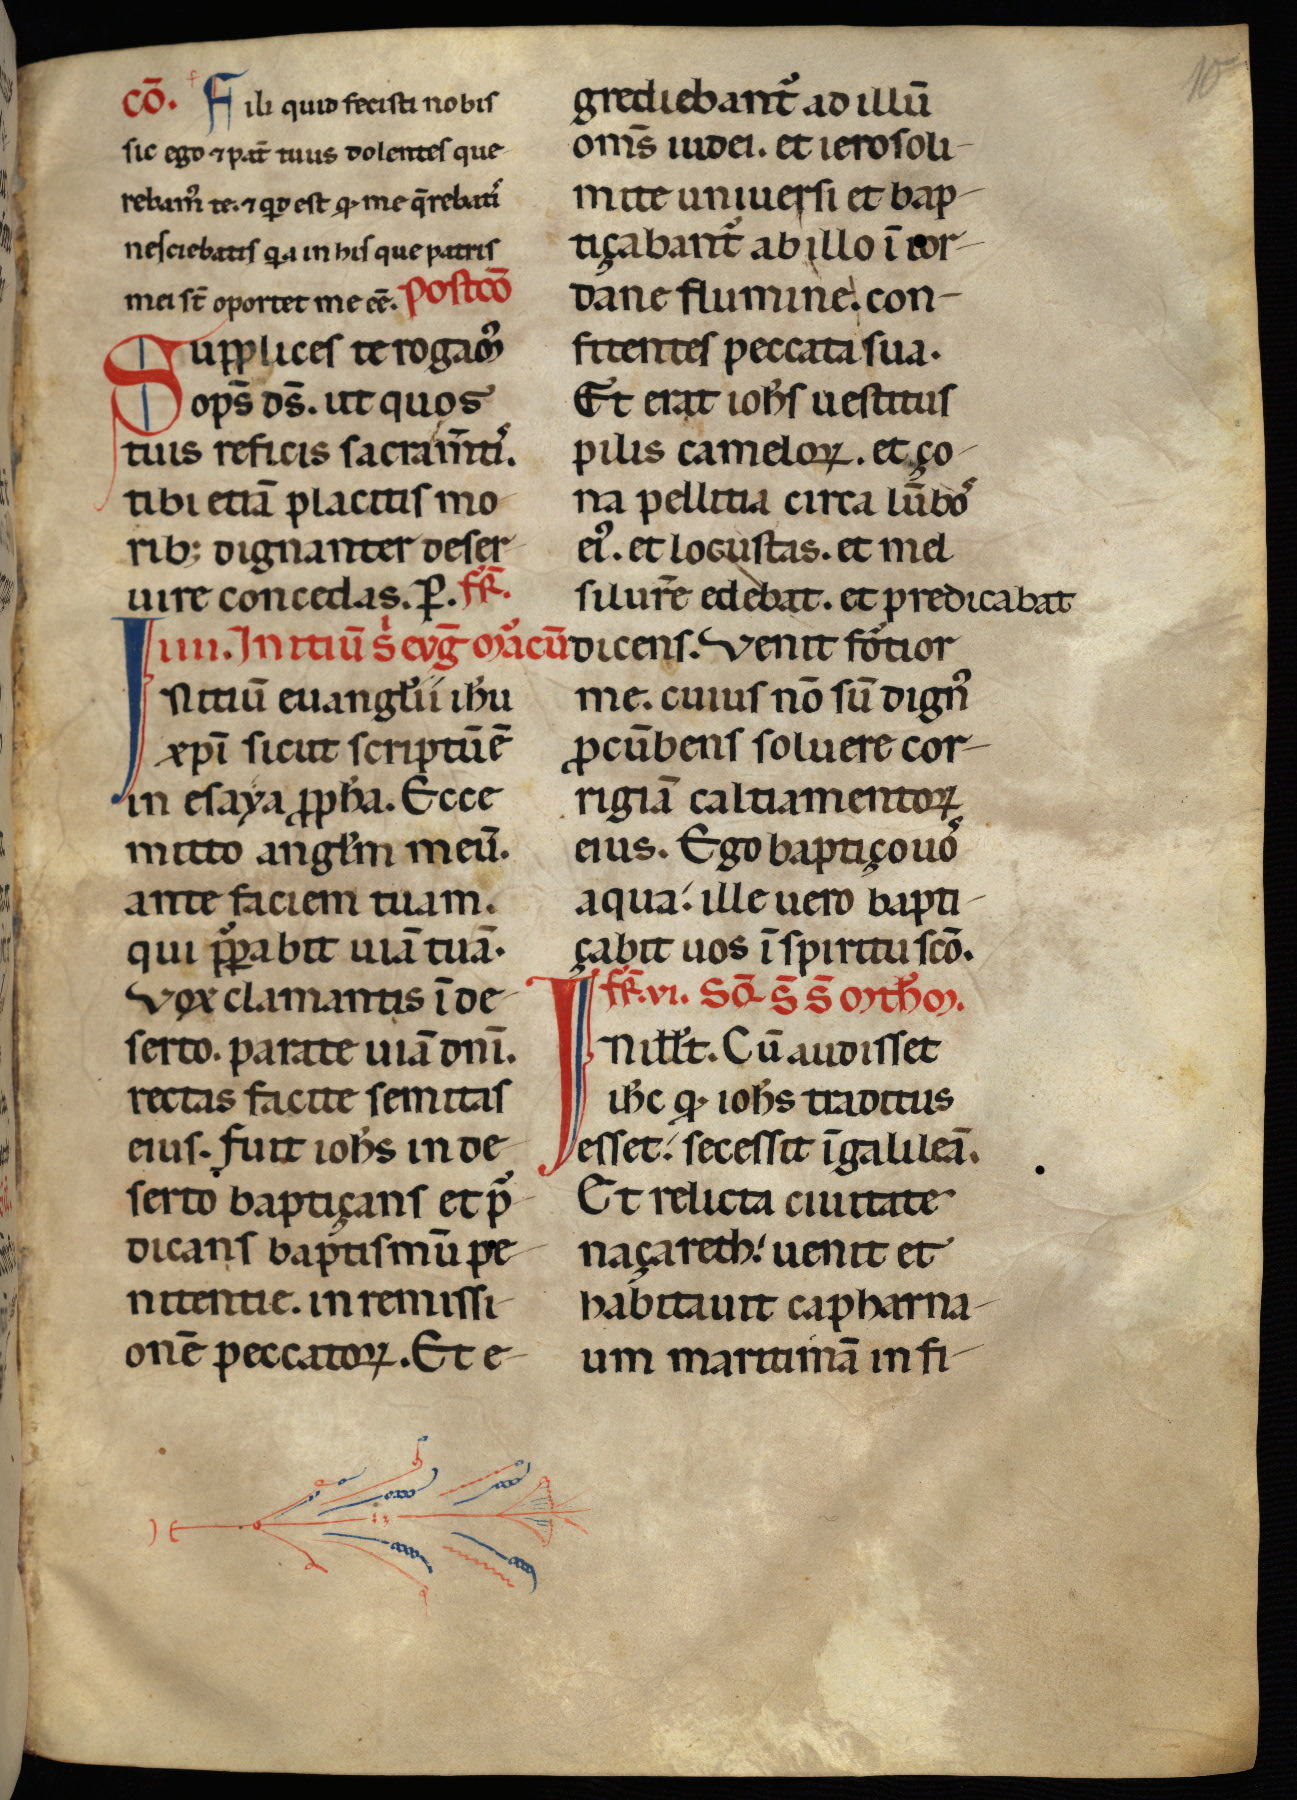 cō. Fili quid fecisti nobis
sic ego ⁊ pat̄ tuus dolentes que
rebam᷒ te. ⁊ qd̄ est ꝙ me q̄rebatis
nesciebatis qa in his que patris
mei st̄ oportet me eē. Postcō
Supplices te rogam᷒
ops̄ ds̄. ut quos
tuis reficis sacram̄tis.
tibi etiā placitis mo
rib; dignanter deser
uire concedas. P. fr̄.
iiii. Initiū s̄ eūḡ marcū
Initiū euanglii ihu
xpi sicut scriptū ē
in esaya ꝓpha. Ecce
mitto anglm meū.
ante faciem tuam.
qui p̄parabit uiā tuā.
Vox clamantis ī de
serto. parate uiā dnī.
rectas facite semitas
eius. Fuit iohs in de
serto baptiçans et p̄
dicans baptismū pe
nitentie. in remissi
onē peccatoꝝ. Et e-
grediebant᷒ ad illū
oms̄ iudei. et ierosoli-
mite uniuersi et bap-
tiçabant᷒ ab illo ī ior-
dane flumine. con-
fitentes peccata sua.
Et erat iohs uestitus
pilis cameloꝝ. et ço-
na pellitia circa lūbos
ei᷒. et locustas. et mel
siluestre edebat. et predicabat
dicens. Venit fortior
me. cuius nō sū dign᷒
ꝓcūbens soluere cor-
rigiā caltiamentoꝝ
eius. Ego baptiço uos
aqua. ille uero bapti-
çabit uos ī spiritu scō.
fr̄. vi. Sꝙ s̄ s̄ mthm.
In illt. Cū audisset
ihc ꝙ iohs traditus
esset. secessit ī galileā.
Et relicta ciuitate
naçareth. uenit et
habitauit capharna-
um maritimā in fi-
10